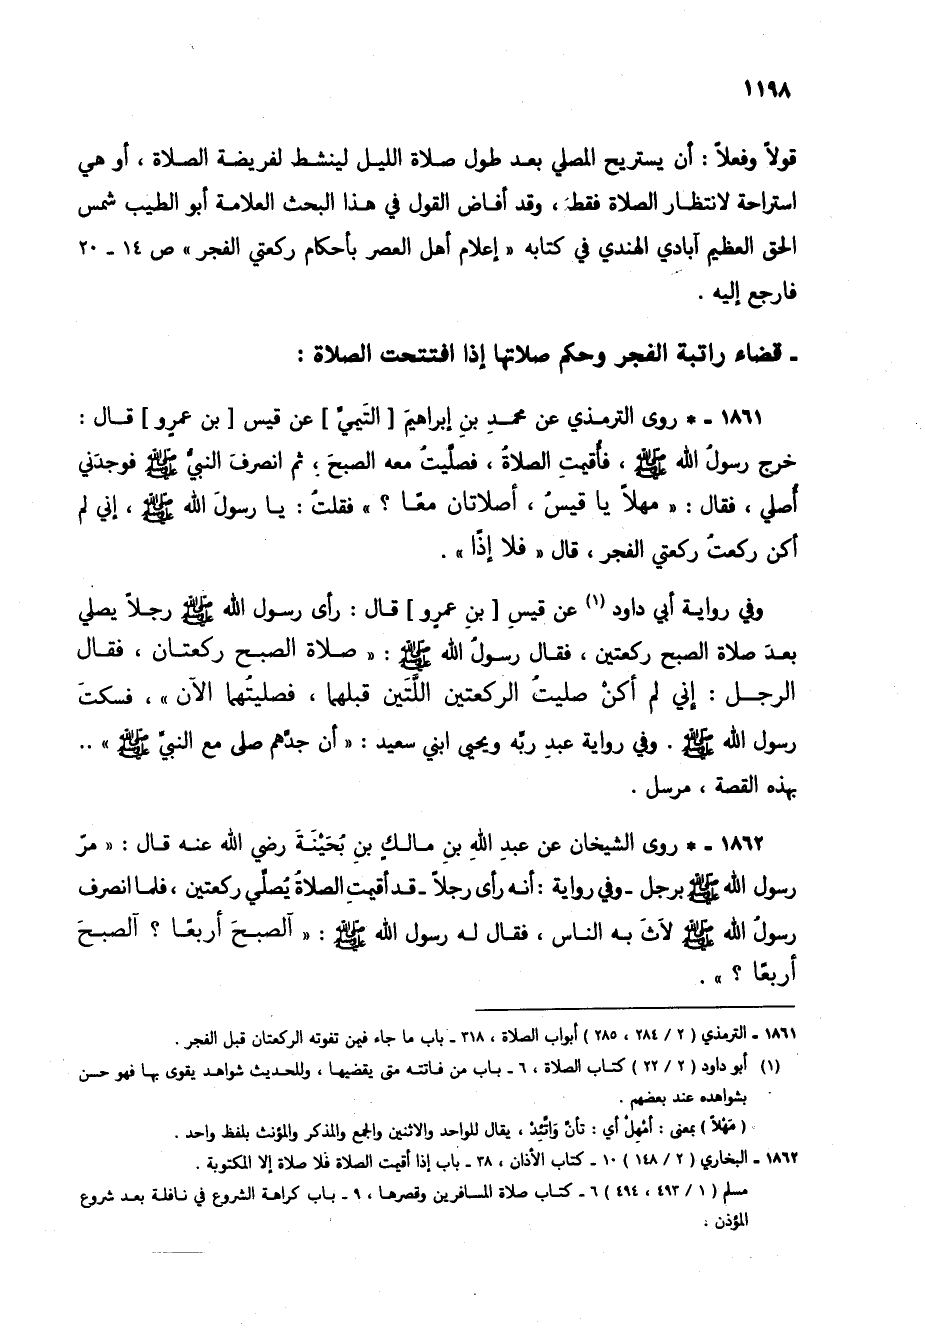 ١١٩٨
قولاً وفعلاً : أن يستريح المصلي بعد طول صلاة الليل لينشط لفريضة الصلاة ، أو هي
استراحة لانتظار الصلاة فقط ، وقد أفاض القول في هذا البحث العلامة أبو الطيب شمس
الحق العظيم آبادي الهندي في كتابه « إعلام أهل العصر بأحكام ركعتي الفجر » ص ١٤ ـ ٢٠
فارجع إليه .
ـ قضاء راتبة الفجر وحكم صلاتها إذا افتتحت الصلاة :
١٨٦١ ـ * روى الترمذي عن محمدِ بنِ إبراهيمَ [ التَيميِّ ] عن قيس [ بن عمرٍو ] قال :
خرج رسولُ الله ﷺ ، فأُقيمتِ الصلاةُ ، فصلَّيتُ معه الصبحَ ، ثم انصرفَ النبيُّ ﷺ فوجدَني
أُصلي ، فقال : « مهلاً يا قيسُ ، أصلاتان معًا ؟ » فقلتُ : يا رسولَ الله ﷺ ، إني لم
أكن ركعتُ ركعتي الفجر ، قال « فلا إذًا » .
وفي رواية أبي داود (١) عن قيسِ [ بنِ عمرٍو ] قال : رأى رسول الله ﷺ رجلاً يصلي
بعدَ صلاة الصبح ركعتين ، فقال رسولُ الله ﷺ : « صلاة الصبح ركعتان ، فقال
الرجل : إني لم أكنْ صليتُ الركعتين اللَّتَين قبلها ، فصليتُهما الآن » ، فسكتَ
رسول الله ﷺ . وفي رواية عبدِ ربِّه ويحيى ابني سعيد : « أن جدَّهم صلى مع النبيِّ ﷺ » ..
بهذه القصة ، مرسل .
١٨٦٢ ـ * روى الشيخان عن عبدِ اللهِ بنِ مالكٍ بنِ بُحَيْنَةَ رضي الله عنه قال : « مرّ
رسول الله ﷺ برجل ـ وفي رواية : أنه رأى رجلاً ـ قد أقيمت الصلاةُ يُصلِّي ركعتين ، فلما انصرف
رسولُ الله ﷺ لاَثَ به الناس ، فقال له رسول الله ﷺ : « آلصبحَ أربعًا ؟ آلصبحَ
أربعًا ؟ » .
١٨٦١ ـ الترمذي ( ٢ / ٢٨٤ ، ٢٨٥ ) أبواب الصلاة ، ٣١٨ ـ باب ما جاء فيمن تفوته الركعتان قبل الفجر .
(١) أبو داود ( ٢ / ٢٢ ) كتاب الصلاة ، ٦ ـ باب من فاتته متى يقضيها ، وللحديث شواهد يقوى بها فهو حسن
بشواهده عند بعضهم .
( مَهْلاً ) بمعنى : أمْهِلْ أي : تأنْ وَاتَّئِدْ ، يقال للواحد والاثنين والجمع والمذكر والمؤنث بلفظ واحد .
١٨٦٢ ـ البخاري ( ٢ / ١٤٨ ) ١٠ ـ كتاب الأذان ، ٣٨ ـ باب إذا أقيمت الصلاة فلا صلاة إلا المكتوبة .
مسلم ( ١ / ٤٩٣ ، ٤٩٤ ) ٦ ـ كتاب صلاة المسافرين وقصرها ، ٩ ـ باب كراهة الشروع في نافلة بعد شروع
المؤذن .